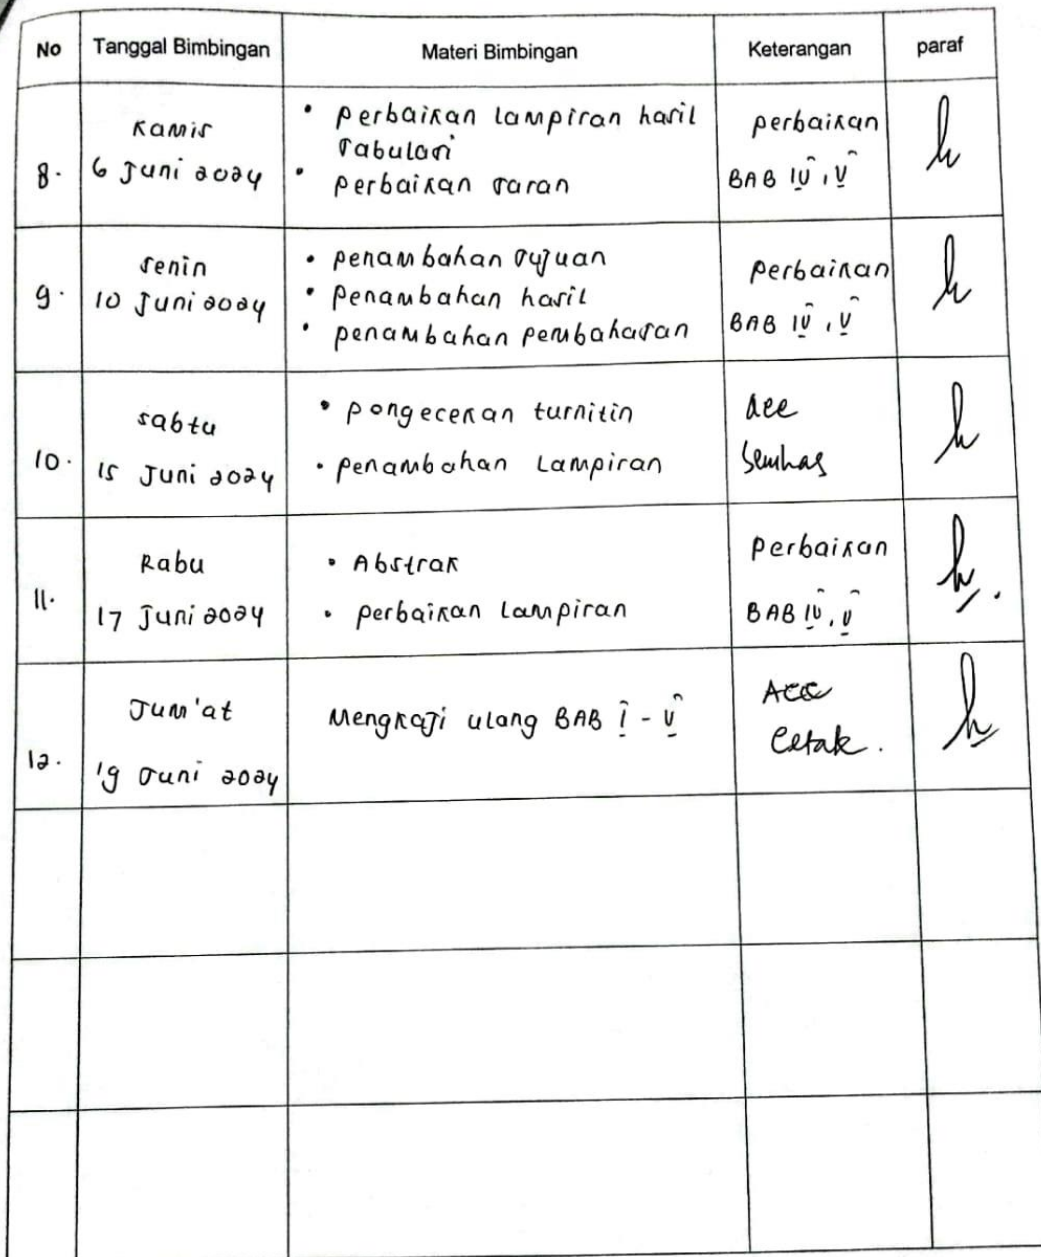 No Tanggal Bimbingan Materi Bimbingan Keterangan paraf
8. Kamis
6 Juni 2024
• perbaikan lampiran hasil
tabulasi
• perbaikan saran
perbaikan
BAB IV, V
9. Senin
10 Juni 2024
• penambahan tujuan
• penambahan hasil
• penambahan pembahasan
perbaikan
BAB IV, V
10. sabtu
15 Juni 2024
• pengecekan turnitin
• penambahan Lampiran
acc
Semhas
11. Rabu
17 Juni 2024
• Abstrak
• perbaikan Lampiran
perbaikan
BAB IV, V
12. Jum'at
19 Juni 2024
Mengkaji ulang BAB I - V
ACC
Cetak.